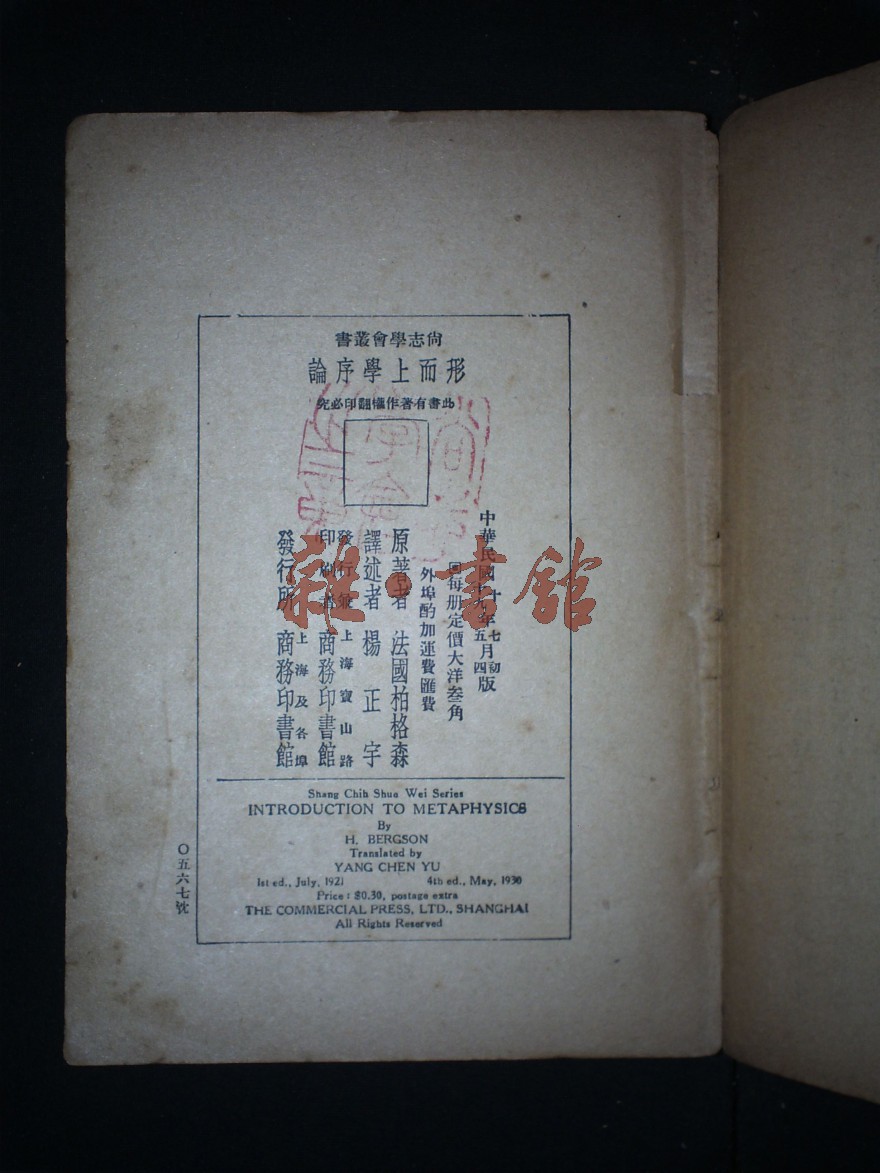 尚志學會叢書
形而上學序論
此書有著作權翻印必究
中華民國十年七月初版
十九年五月四版
每册定價大洋叁角
外埠酌加運費匯費
原著者 法國柏格森
譯述者 楊正宇
發行兼印刷者 上海寶山路 商務印書館
發行所 上海及各埠 商務印書館
雜·書館
Shang Chih Shue Wei Series
INTRODUCTION TO METAPHYSICS
By
H. BERGSON
Translated by
YANG CHEN YU
1st ed., July, 1921 4th ed., May, 1930
Price: $0.30, postage extra
THE COMMERCIAL PRESS, LTD., SHANGHAI
All Rights Reserved
〇五六七號